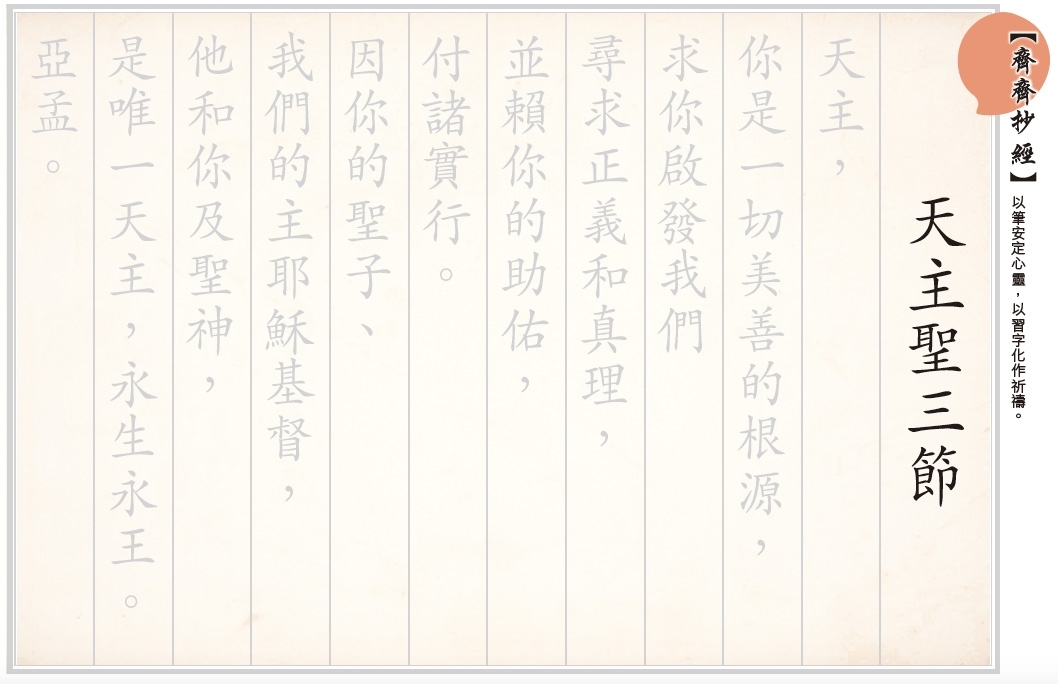 【齊齊抄經】
以筆安定心靈，以習字化作祈禱。
天主聖三節
天主，
你是一切美善的根源，
求你啟發我們
尋求正義和真理，
並賴你的助佑，
付諸實行。
因你的聖子、
我們的主耶穌基督，
他和你及聖神，
是唯一天主，永生永王。
亞孟。